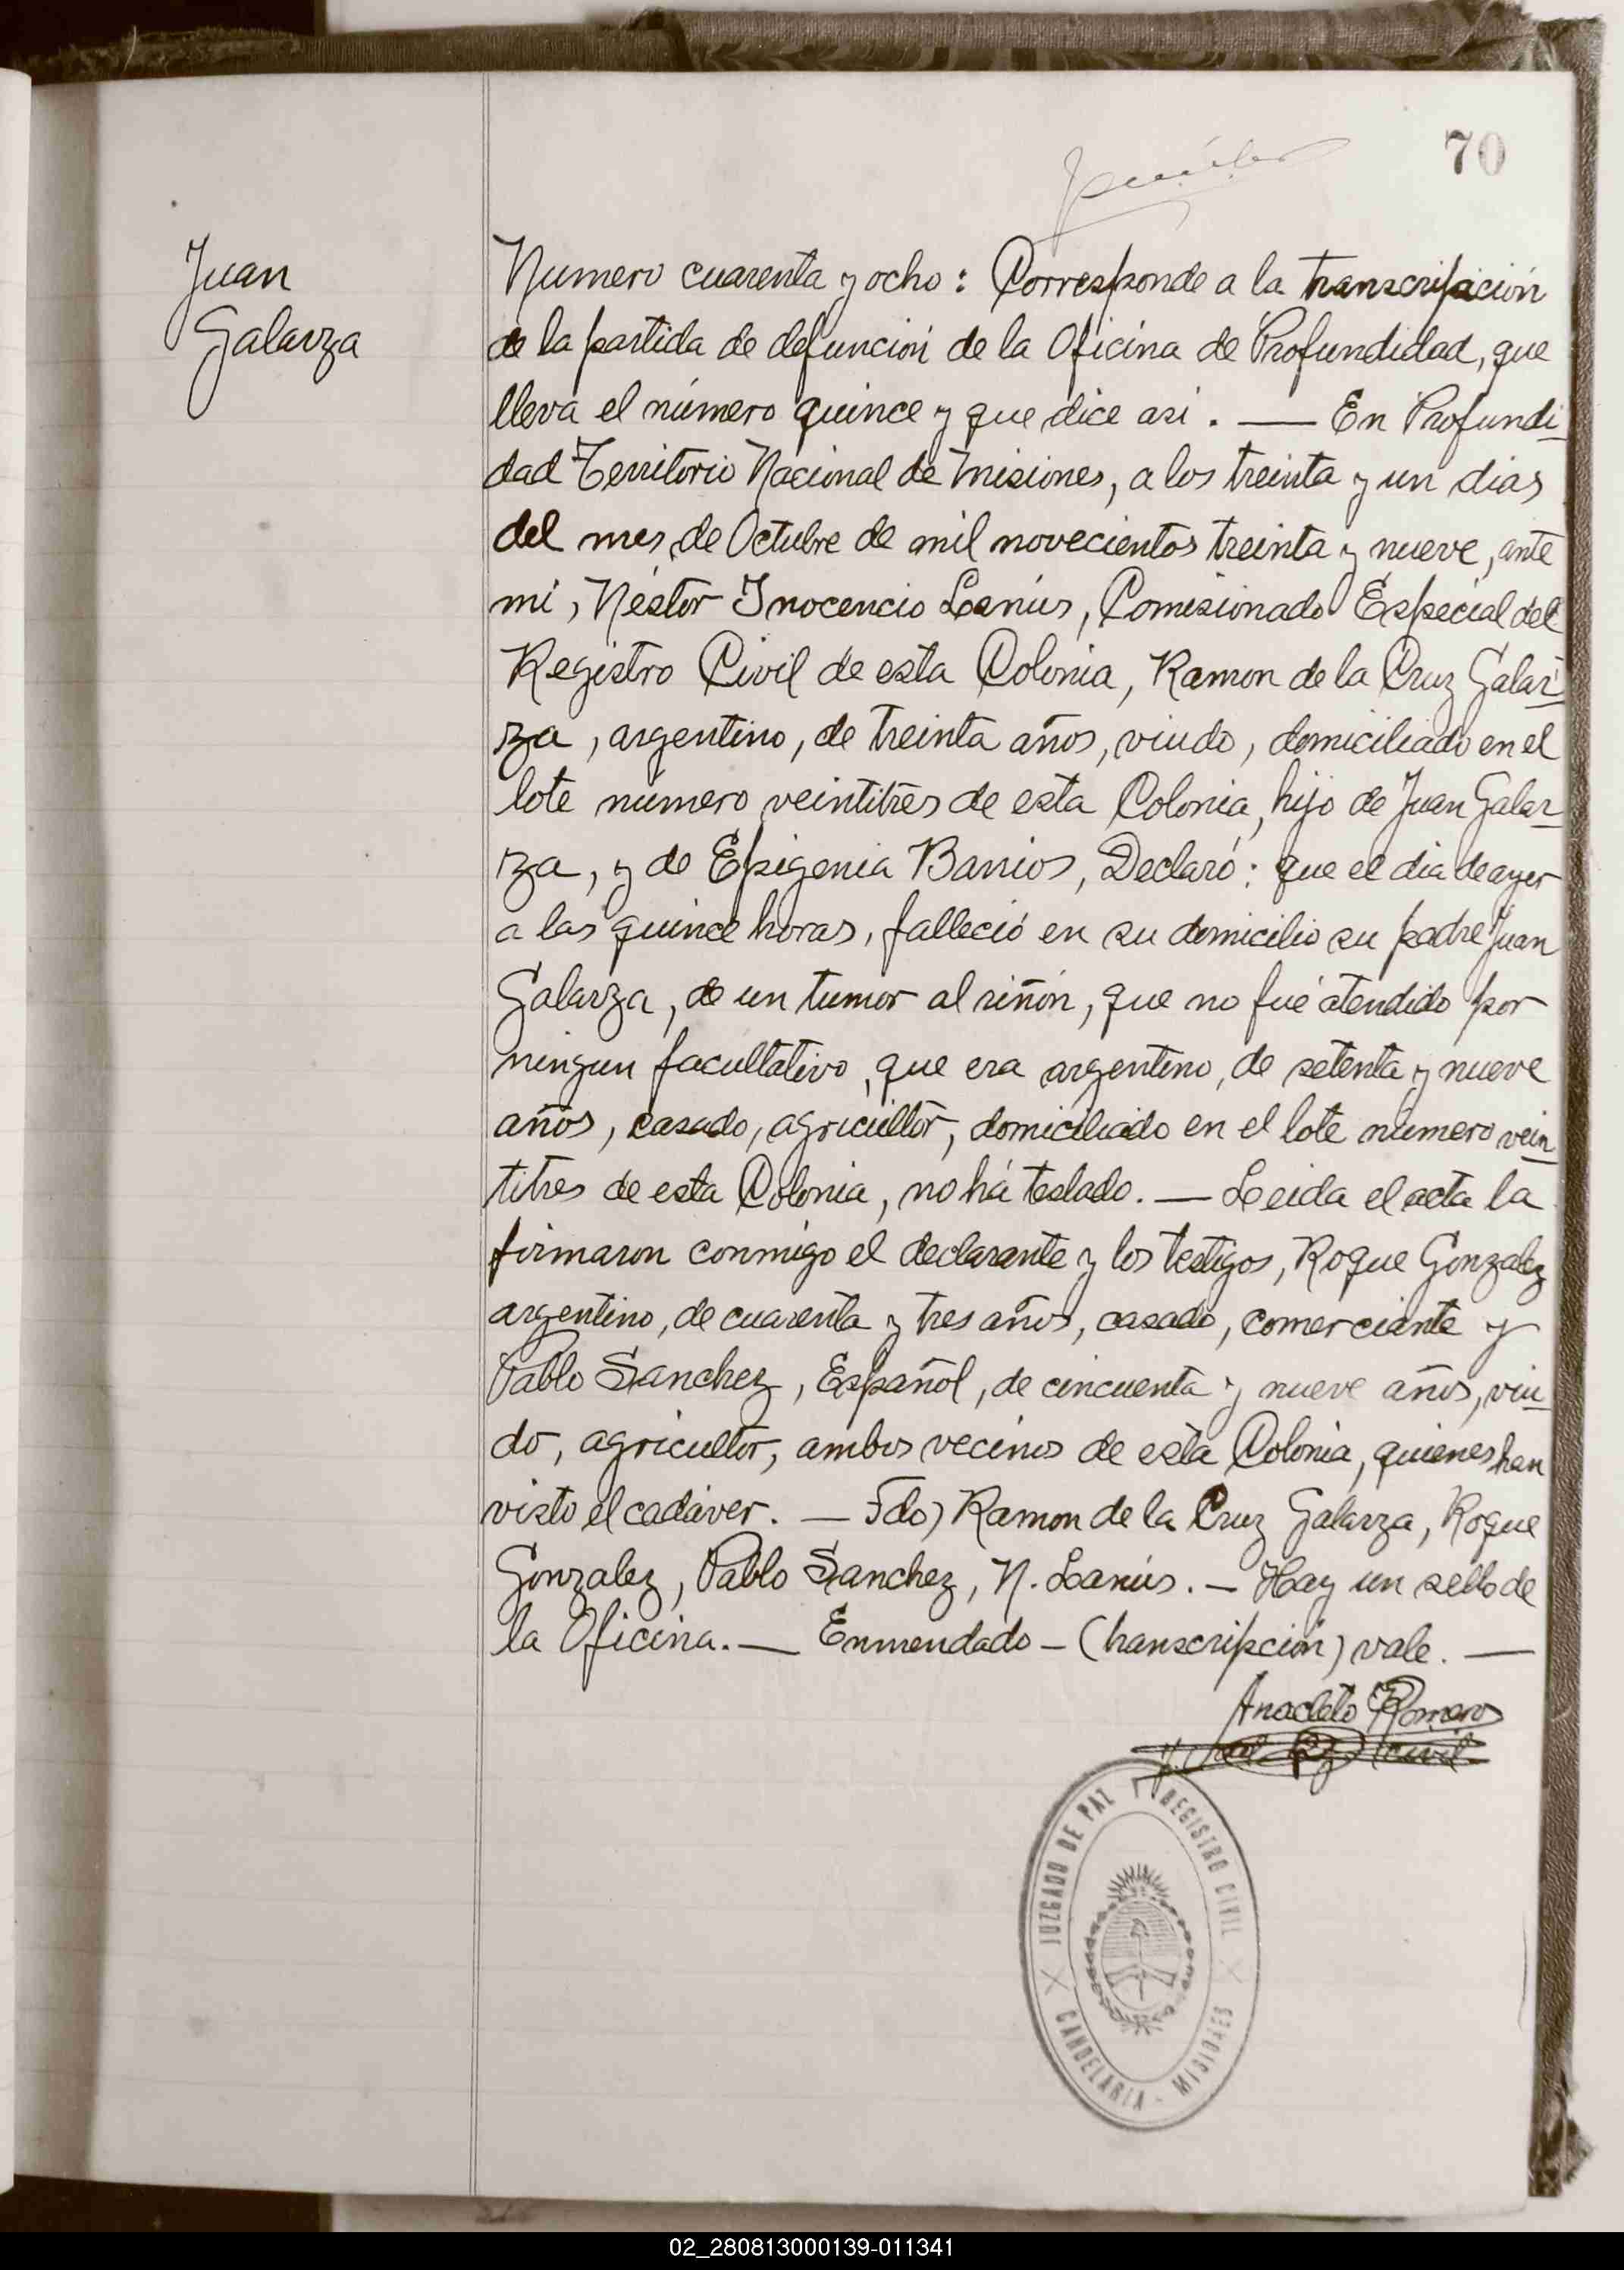 70
Juan
Galarza
Numero cuarenta y ocho: Corresponde a la transcripción
de la partida de defunción de la Oficina de Profundidad, que
lleva el número quince y que dice asi. — En Profundi-
dad Territorio Nacional de Misiones, a los treinta y un dias
del mes de Octubre de mil novecientos treinta y nueve, ante
mi, Néstor Inocencio Lanús, Comisionado Especial del
Registro Civil de esta Colonia, Ramon de la Cruz Galar-
rza, argentino, de treinta años, viudo, domiciliado en el
lote número veintitres de esta Colonia, hijo de Juan Galar-
rza, y de Epigenia Barrios, Declaró: que el dia de ayer
a las quince horas, falleció en su domicilio su padre Juan
Galarza, de un tumor al riñón, que no fué atendido por
ningun facultativo, que era argentino, de setenta y nueve
años, casado, agricultor, domiciliado en el lote numero vein-
titres de esta Colonia, no há testado. — Leida el acta la
firmaron conmigo el declarante y los testigos, Roque Gonzalez
argentino, de cuarenta y tres años, casado, comerciante y
Pablo Sanchez, Español, de cincuenta y nueve años, viu-
do, agricultor, ambos vecinos de esta Colonia, quienes han
visto el cadáver. — Fdo) Ramon de la Cruz Galarza, Roque
Gonzalez, Pablo Sanchez, N. Lanús. — Hay un sello de
la Oficina. — Enmendado — (transcripción) vale. —
Anacleto Romero
civil
JUZGADO DE PAZ Y REGISTRO CIVIL
CANDELARIA - MISIONES
02_280813000139-011341